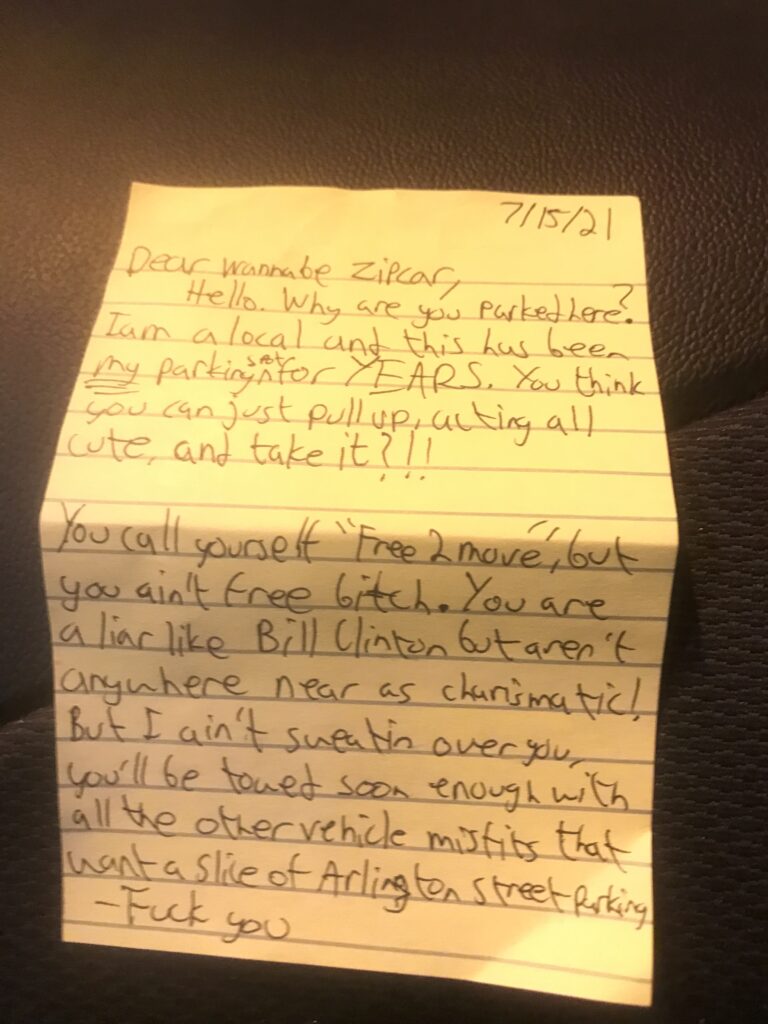 7/15/21
Dear wannabe Zipcar,
Hello. Why are you parked here?
I am a local and this has been
my parking spot for YEARS. You think
you can just pull up, acting all
cute, and take it?!!
You call yourself "Free2move", but
you ain't free bitch. You are
a liar like Bill Clinton but aren't
anywhere near as charismatic!
But I ain't sweatin over you,
you'll be towed soon enough with
all the other vehicle misfits that
want a slice of Arlington street parking
-Fuck you